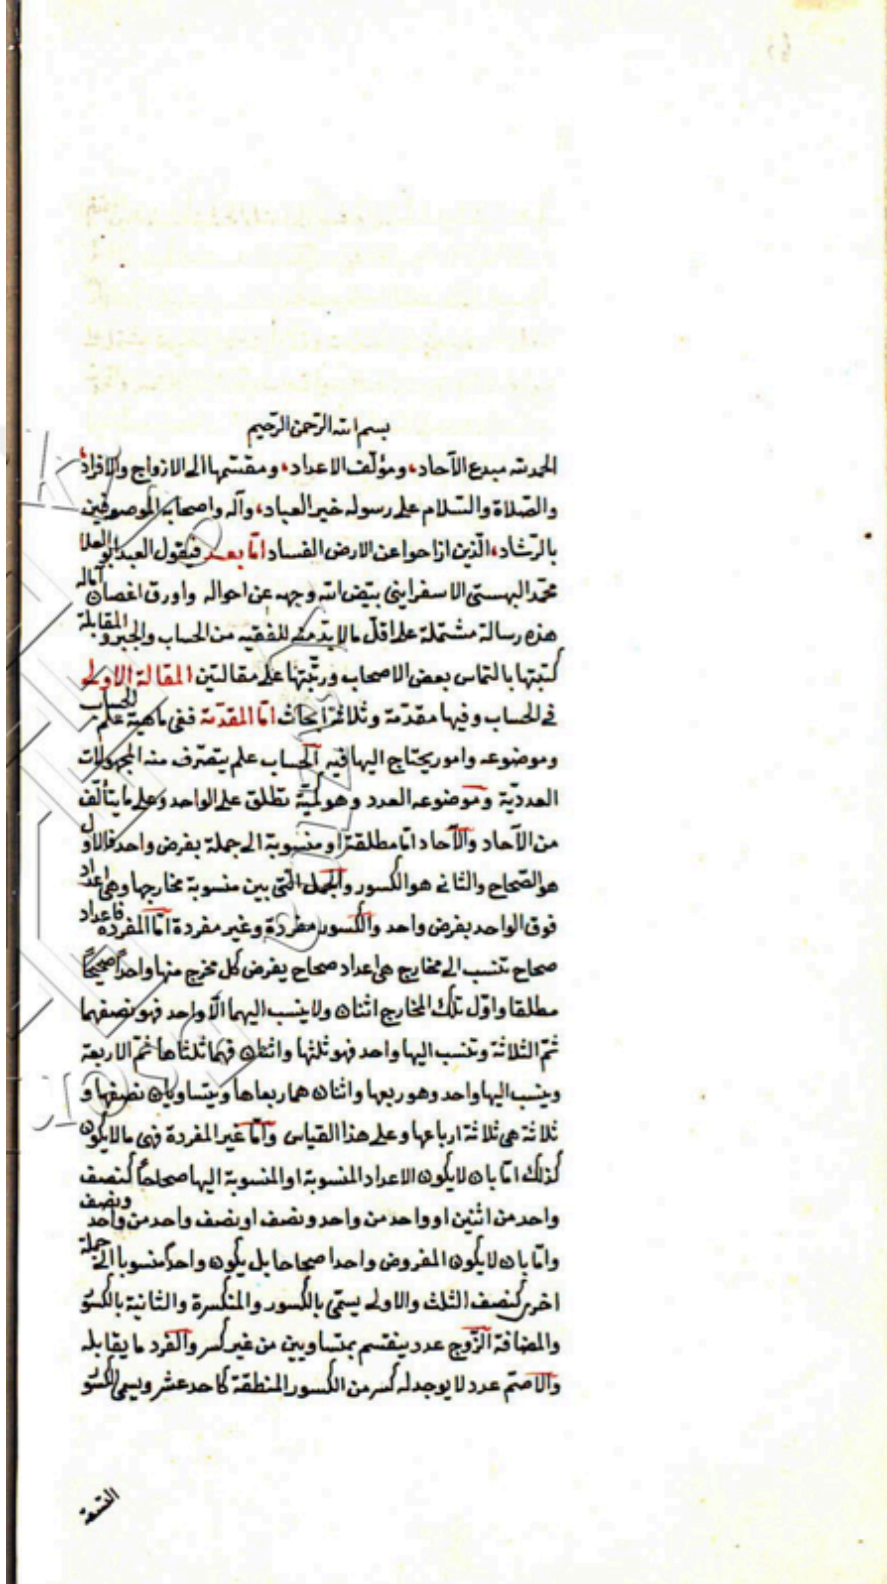 بسم الله الرحمن الرحيم
الحمد لله مبدع الآحاد، ومؤلف الاعداد، ومقسمها الى الازواج والافراد،
والصلاة والسلام على رسوله خير العباد، وآله واصحابه الموصوفين
بالرشاد، الذين ازاحوا عن الارض الفساد اما بعد فيقول العبد ابو العلا
محمد البهستي الاسفرايني بيض الله وجهه عن احواله واورق اغصان آماله
هذه رسالة مشتملة على اقل مالابد منه للفقيه من الحساب والجبر والمقابلة
كتبتها بالتماس بعض الاصحاب ورتبتها على مقالتين المقالة الاولى
فى الحساب وفيها مقدمة وثلاثة ابحاث اما المقدمة ففى ماهية علم الحساب
وموضوعه وامور يحتاج اليها فيه الحساب علم يتصرف منه المجهولات
العددية وموضوعه العدد وهو كمية تطلق على الواحد وعلى ما يتألف
من الآحاد والآحاد اما مطلقة او منسوبة الى جملة بفرض واحد فالاول
هو الصحاح والثانى هو الكسور والجمل التى بين منسوبة مخارجها وهى اعداد
فوق الواحد بفرض واحد والكسور مفردة وغير مفردة اما المفردة فاعداد
صحاح تنسب الى مخارج هى اعداد صحاح يفرض كل مخرج منها واحدا صحيحا
مطلقا واول تلك المخارج اثنان ولا ينسب اليهما الا واحد فهو نصفهما
ثم الثلاثة وتنسب اليها واحد فهو ثلثها واثنان فهما ثلثاها ثم الاربعة
وينسب اليها واحد وهو ربعها واثنان هما ربعاها ويتساويان نصفها و
ثلاثة هى ثلاثة ارباعها وعلى هذا القياس واما غير المفردة فهى مالايكون
كذلك اما بان لايكون الاعداد المنسوبة او المنسوبة اليها صحاحا كنصف
واحد من اثنين او واحد من واحد ونصف او نصف واحد من واحد ونصف
واما بان لايكون المفروض واحدا صحاحا بل يكون واحدا منسوبا الى جملة
اخرى كنصف الثلث والاولى يسمى بالكسور والمنكسرة والثانية بالكسور
والمضافة الزوج عدد ينقسم بمتساويين من غير كسر والفرد ما يقابله
والاصم عدد لا يوجد له كسر من الكسور المنطقة كاحد عشر ويسمى الكسور